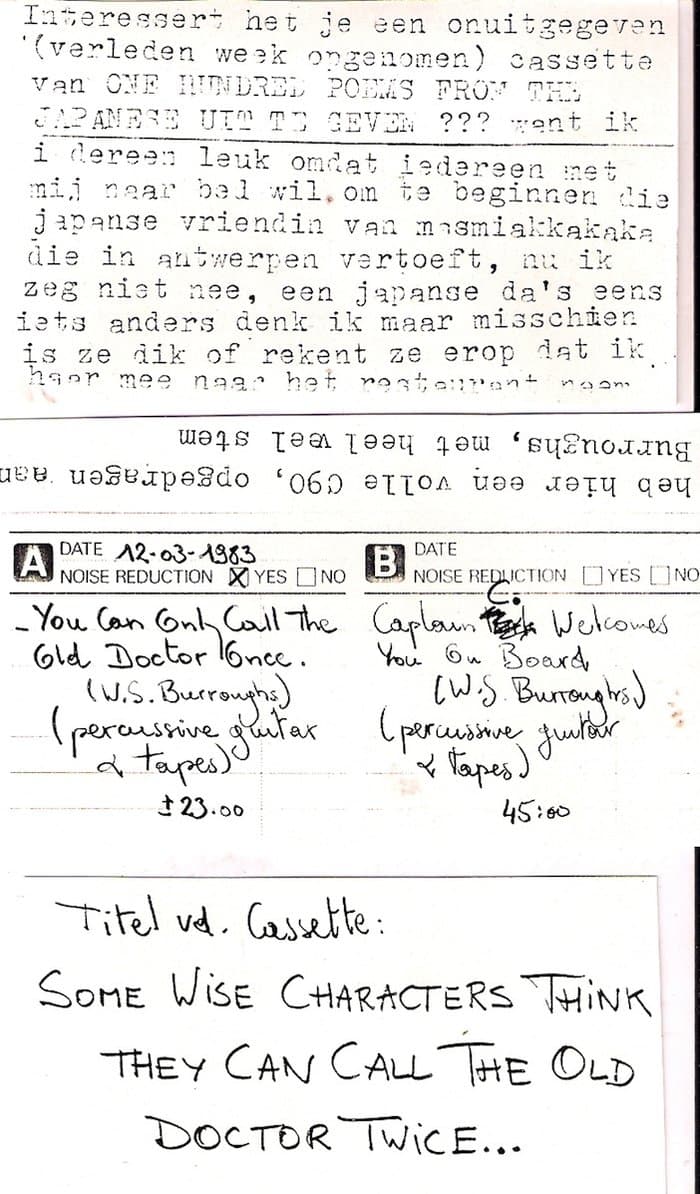 Interessert het je een onuitgegeven
(verleden week opgenomen) cassette
van ONE HUNDRED POEMS FROM THE
JAPANESE UIT TE GEVEN ??? want ik
i dereen leuk omdat iedereen met
mij naar bed wil. om te beginnen die
japanse vriendin van masmiakkakaka
die in antwerpen vertoeft, nu ik
zeg niet nee, een japanse da's eens
iets anders denk ik maar misschien
is ze dik of rekent ze erop dat ik
haar mee naar het restaurant neem
heb hier een volle C90, opgedragen aan
Burroughs, met heel veel stem
A DATE 12-03-1983
NOISE REDUCTION ☒ YES ☐ NO
- You Can Only Call The
Old Doctor Once.
(W.S. Burroughs)
(percussive guitar
& tapes)
±23.00
B DATE
NOISE REDUCTION ☐ YES ☐ NO
Captain C. Welcomes
You On Board
(W.S. Burroughs)
(percussive guitar
& tapes)
45:00
Titel vd. Cassette:
SOME WISE CHARACTERS THINK
THEY CAN CALL THE OLD
DOCTOR TWICE...